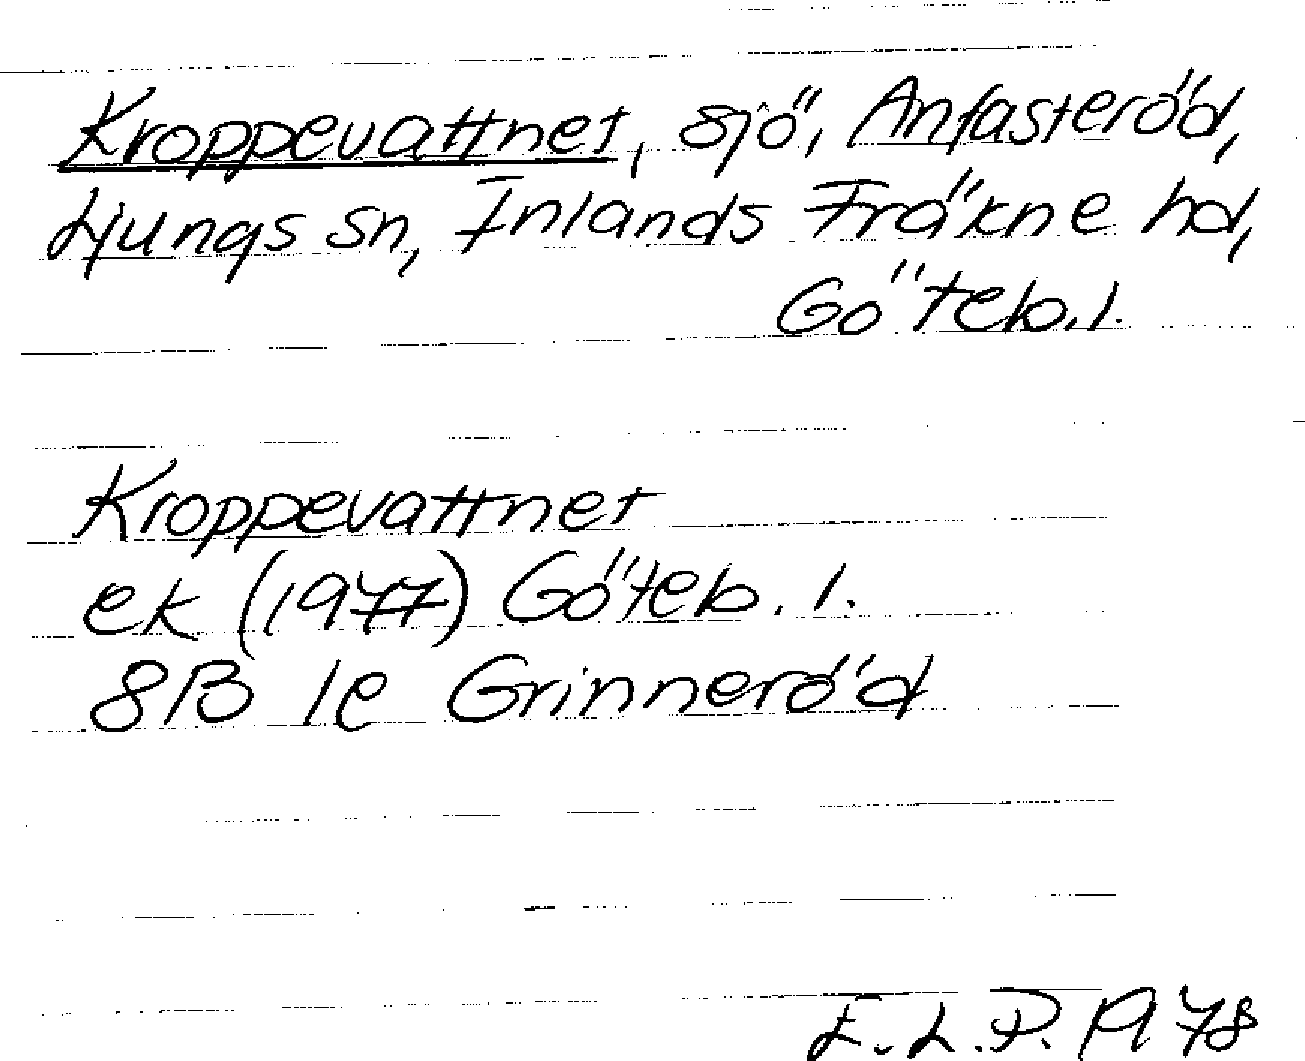 Kroppevattnet, sjö, Anfasteröd,
Ljungs sn, Inlands Fräkne hd,
Göteb. l.
Kroppevattnet
ek (1977) Göteb. l.
8B 1e Grinneröd
E.L.P. 1978